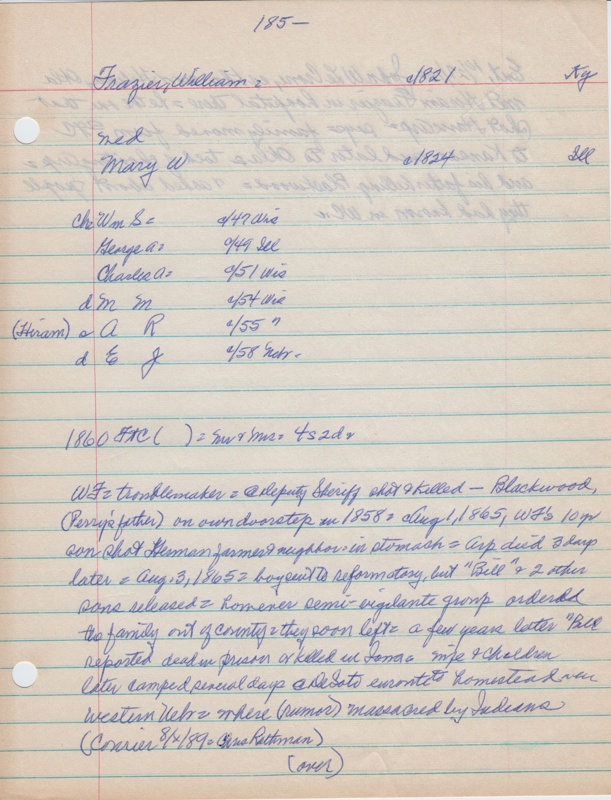 185—
Frazier, William = c/1821 Ky
med
Mary W c/1824 Ill
Ch: Wm S = c/47 Wis
George A = c/49 Ill
Charles A = c/51 Wis
d M M c/54 Wis
(Hiram) s A R c/55 "
d E J c/58 Nebr.
1860 FtC ( ) = Mr & Mrs = 4s 2d =
WF = troublemaker = @ deputy Sheriff shot & killed — Blackwood,
(Perry's father) on own doorstep in 1858 = c Aug. 1, 1865, WF's 10 yr
son shot German farmer & neighbor in stomach = Arp died 3 days
later = Aug. 3, 1865 = boy sent to reformatory, but "Bill" & 2 other
sons released = however semi-vigilante group ordered
the family out of county = they soon left = a few years later "Bill"
reported dead in prison or killed in Iowa = wife & children
later camped several days @ DeSoto enroute to homestead in
Western Nebr = where (rumor) massacred by Indians
(Courier 8/x/89 = Chris Rathman)
(over)